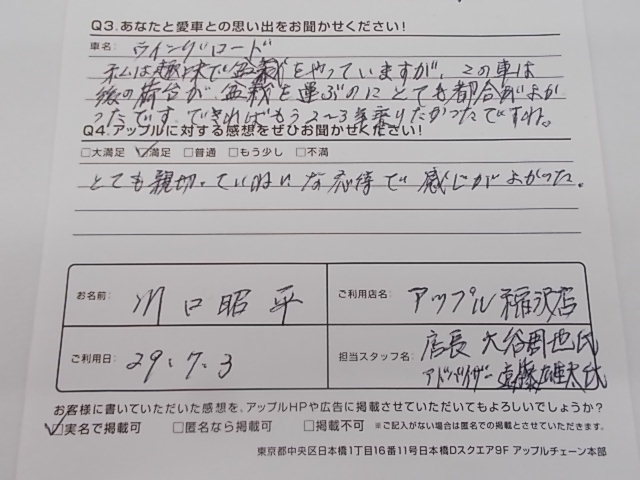 Q3.あなたと愛車との思い出をお聞かせください!
車名: ウイングロード
私は趣味で盆栽をやっていますが、この車は
後の荷台が、盆栽を運ぶのにとても都合がよか
ったです。できればもう2~3年乗りたかったですね。
Q4.アップルに対する感想をぜひお聞かせください!
□大満足 ☑満足 □普通 □もう少し □不満
とても親切、ていねいな応待で感じがよかった。
お名前: 川口昭平
ご利用店名: アップル稲沢店
ご利用日: 29.7.3
担当スタッフ名: 店長 大谷周也氏
アドバイザー 遠藤雄太氏
お客様に書いていただいた感想を、アップルHPや広告に掲載させていただいてもよろしいでしょうか?
☑実名で掲載可 □匿名なら掲載可 □掲載不可 ※ご記入がない場合は匿名での掲載とさせていただきます。
東京都中央区日本橋1丁目16番11号日本橋Dスクエア9F アップルチェーン本部